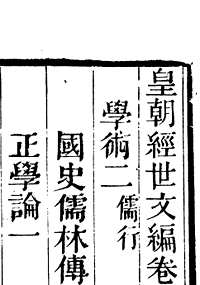 皇朝經世文編卷
學術二 儒行
國史儒林傳
正學論一